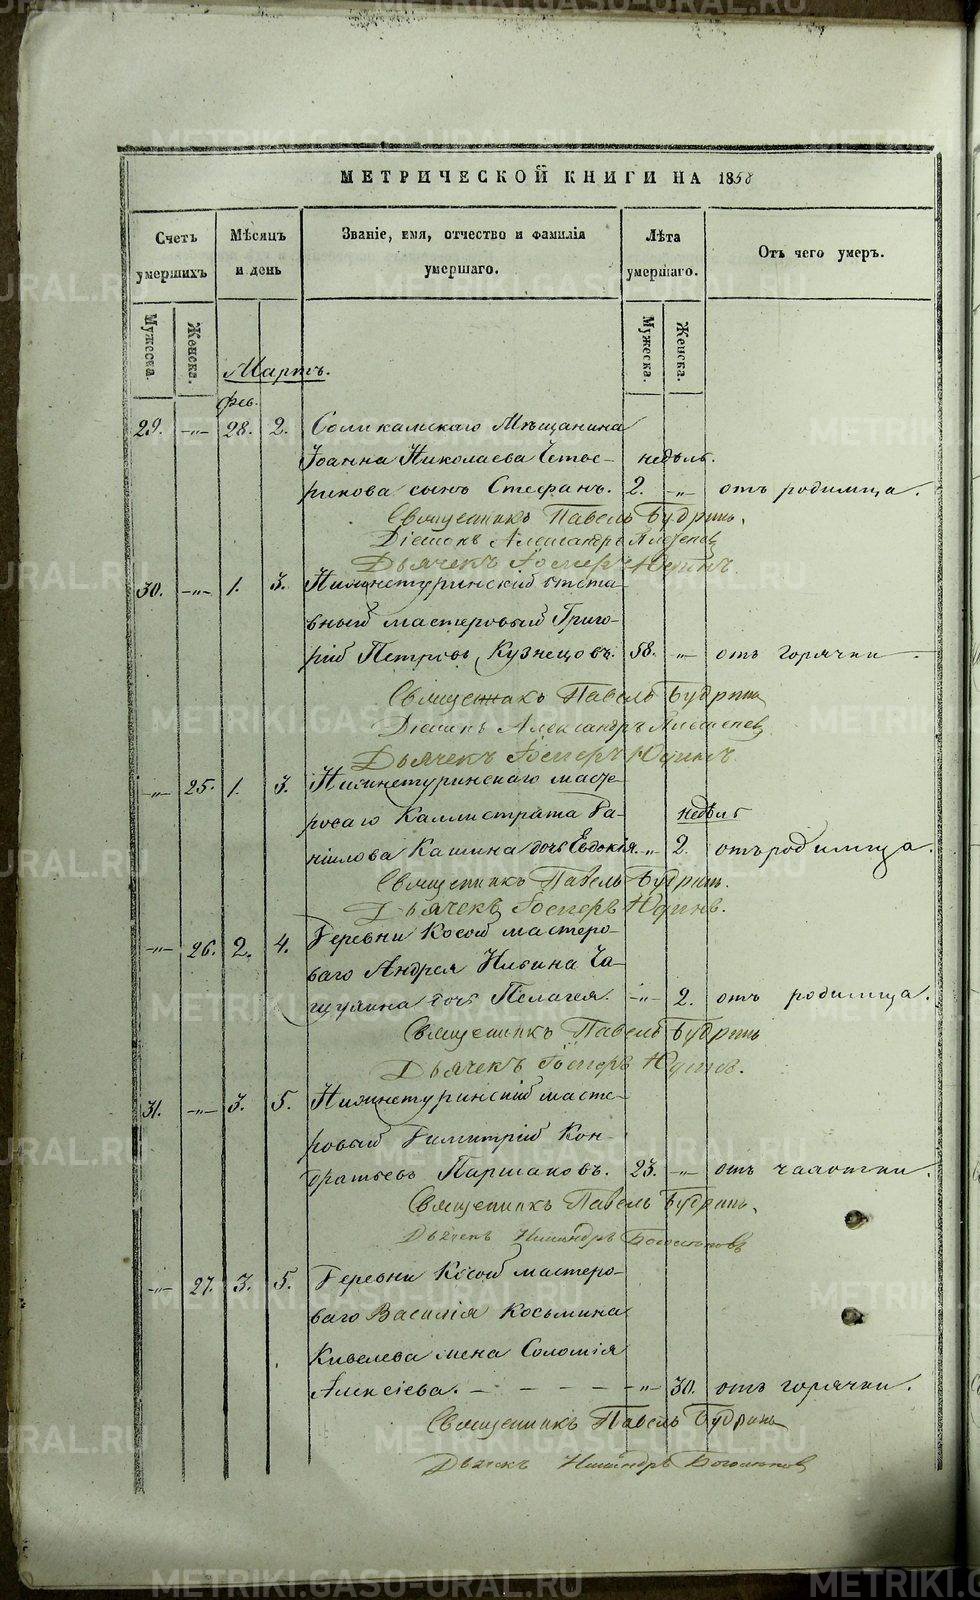 МЕТРИЧЕСКОЙ КНИГИ НА 1858
Счетъ умершихъ
Мѣсяцъ и день
Званіе, имя, отчество и фамилія умершаго.
Лѣта умершаго.
Отъ чего умеръ.
Мужеска. Женска. Мужеска. Женска.
Мартъ.
фев.
29. -„- 28. 2. Соликамскаго Мѣщанина
Іоанна Николаева Четве- недѣль.
рикова сынъ Стефанъ. 2. „ отъ родимца.
Священникъ Павелъ Будринъ.
Діаконъ Александръ
Дьячекъ
30. -„- 1. 3. Нижнетуринскій отста-
вный мастеровый Григо-
рій Петровъ Кузнецовъ. 58. „ отъ горячки
Священникъ Павелъ Будринъ
Діаконъ Александръ
Дьячекъ
-„- 25. 1. 3. Нижнетуринскаго масте-
роваго Каллистрата Да- недѣль
ніилова Кашина дочь Евдокія. „ 2. отъ родимца.
Священникъ Павелъ Будринъ.
Дьячекъ
-„- 26. 2. 4. Деревни Косой мастеро-
ваго Андрея Ильина Ча-
щухина дочь Пелагея. -„- 2. отъ родимца.
Священникъ Павелъ Будринъ
Дьячекъ
31. -„- 3. 5. Нижнетуринскій масте-
ровый Димитрій Кон-
дратьевъ Паршаковъ. 23. -„- отъ чахотки.
Священникъ Павелъ Будринъ.
Дьячекъ
-„- 27. 3. 5. Деревни Косой мастеро-
ваго Василія Косьмина
Кивелева жена Соломія
Алексіева. - - - - - -„- 30. отъ горячки.
Священникъ Павелъ Будринъ
Дьячекъ
METRIKI.GASO-URAL.RU